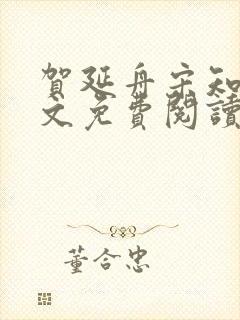 賀延舟宋知
文免費閱讀
董合忠